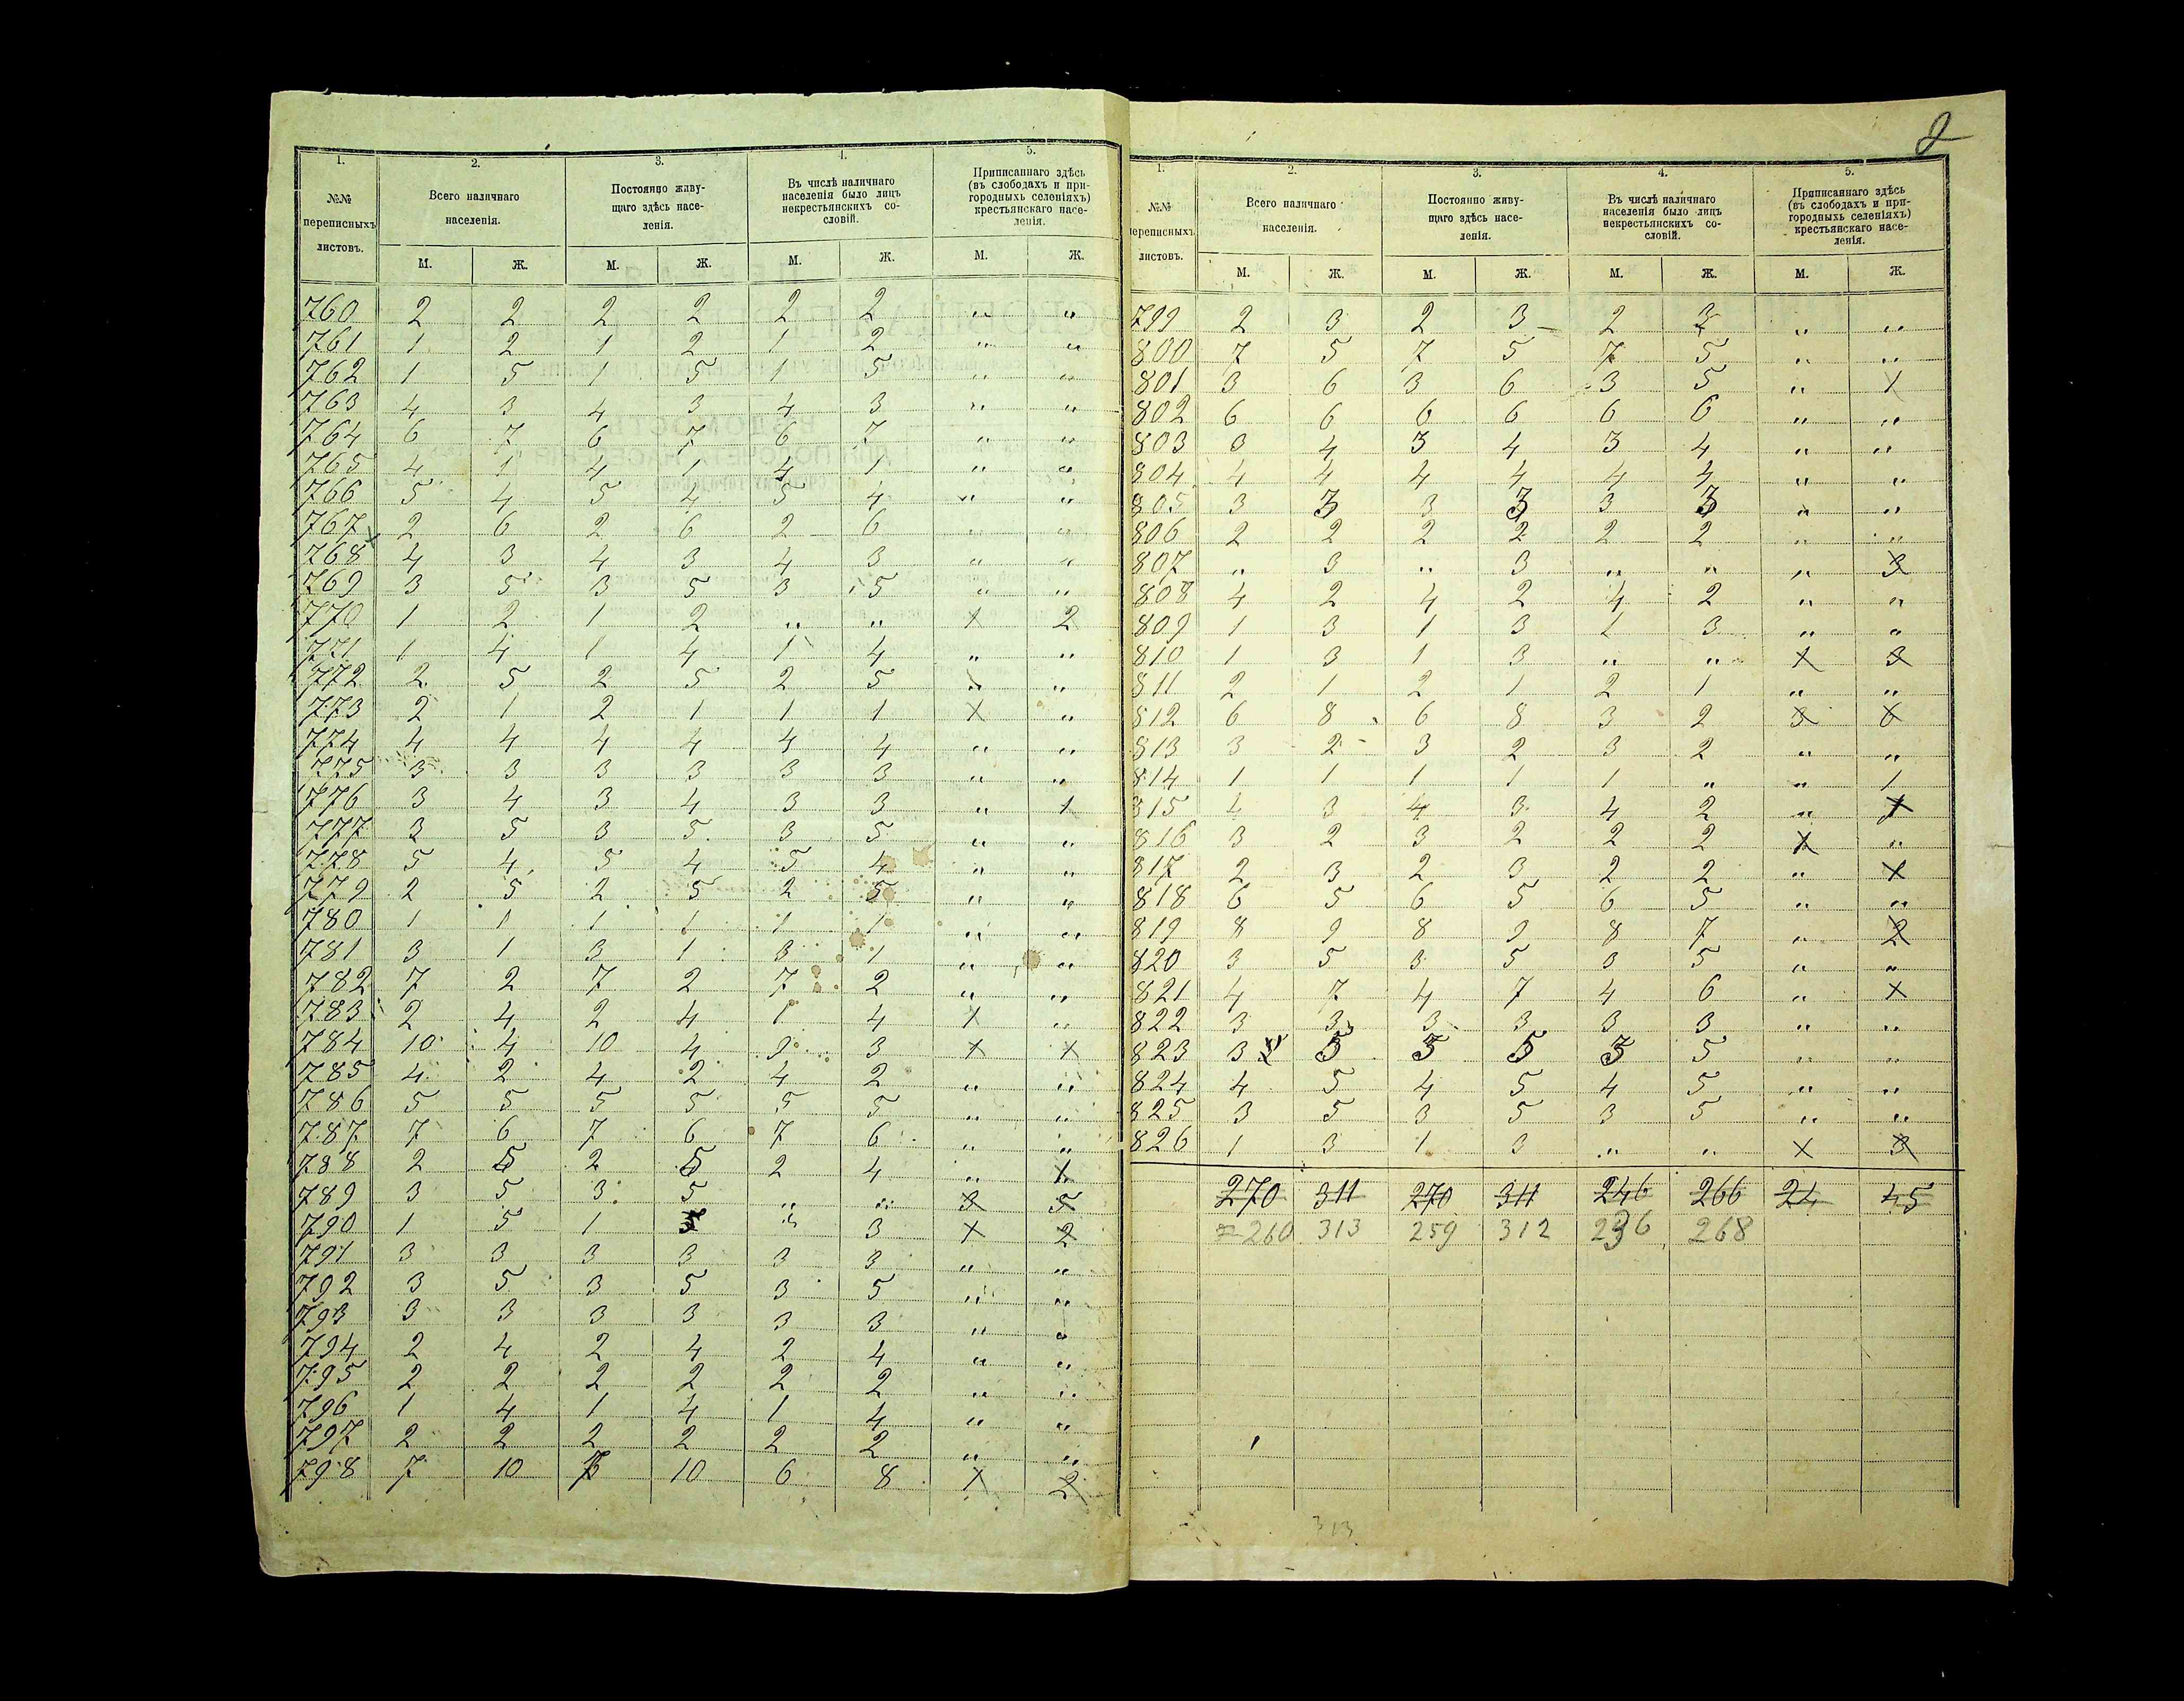 1. 2. 3. 4. 5.
№№ переписныхъ листовъ. Всего наличнаго населенія. Постоянно живущаго здѣсь населенія. Въ числѣ наличнаго населенія было лицъ некрестьянскихъ сословій. Приписаннаго здѣсь (въ слободахъ и пригородныхъ селеніяхъ) крестьянскаго населенія.
М. Ж. М. Ж. М. Ж. М. Ж.
760 2 2 2 2 2 2 " "
761 1 2 1 2 1 2 " "
762 1 5 1 5 1 5 " "
763 4 3 4 3 4 3 " "
764 6 7 6 7 6 7 " "
765 4 1 4 1 4 1 " "
766 5 4 5 4 5 4 " "
767 2 6 2 6 2 6 " "
768 4 3 4 3 4 3 " "
769 3 5 3 5 3 5 " "
770 1 2 1 2 " " 1 2
771 1 4 1 4 1 4 " "
772 2 5 2 5 2 5 " "
773 2 1 2 1 1 1 1 "
774 4 4 4 4 4 4 " "
775 3 3 3 3 3 3 " "
776 3 4 3 4 3 3 " 1
777 3 5 3 5 3 5 " "
778 5 4 5 4 5 4 " "
779 2 5 2 5 2 5 " "
780 1 1 1 1 1 1 " "
781 3 1 3 1 3 1 " "
782 7 2 7 2 7 2 " "
783 2 4 2 4 1 4 1 "
784 10 4 10 4 9 3 1 1
785 4 2 4 2 4 2 " "
786 5 5 5 5 5 5 " "
787 7 6 7 6 7 6 " "
788 2 5 2 5 2 4 " 1
789 3 5 3 5 " " 3 5
790 1 5 1 5 " 3 1 2
791 3 3 3 3 3 3 " "
792 3 5 3 5 3 5 " "
793 3 3 3 3 3 3 " "
794 2 4 2 4 2 4 " "
795 2 2 2 2 2 2 " "
796 1 4 1 4 1 4 " "
797 2 2 2 2 2 2 " "
798 7 10 7 10 6 8 1 2
2
1. 2. 3. 4. 5.
№№ переписныхъ листовъ. Всего наличнаго населенія. Постоянно живущаго здѣсь населенія. Въ числѣ наличнаго населенія было лицъ некрестьянскихъ сословій. Приписаннаго здѣсь (въ слободахъ и пригородныхъ селеніяхъ) крестьянскаго населенія.
М. Ж. М. Ж. М. Ж. М. Ж.
799 2 3 2 3 2 3 " "
800 7 5 7 5 7 5 " "
801 3 6 3 6 3 5 " 1
802 6 6 6 6 6 6 " "
803 3 4 3 4 3 4 " "
804 4 4 4 4 4 4 " "
805 3 3 3 3 3 3 " "
806 2 2 2 2 2 2 " "
807 " 3 " 3 " " " 3
808 4 2 4 2 4 2 " "
809 1 3 1 3 1 3 " "
810 1 3 1 3 " " 1 3
811 2 1 2 1 2 1 " "
812 6 8 6 8 3 2 3 6
813 3 2 3 2 3 2 " "
814 1 1 1 1 1 " " 1
815 4 3 4 3 4 2 " 1
816 3 2 3 2 2 2 1 "
817 2 3 2 3 2 2 " 1
818 6 5 6 5 6 5 " "
819 8 9 8 9 8 7 " 2
820 3 5 3 5 3 5 " "
821 4 7 4 7 4 6 " 1
822 3 3 3 3 3 3 " "
823 3 5 3 5 3 5 " "
824 4 5 4 5 4 5 " "
825 3 5 3 5 3 5 " "
826 1 3 1 3 " " 1 3
270 311 270 311 246 266 24 45
260 313 259 312 236 268
313